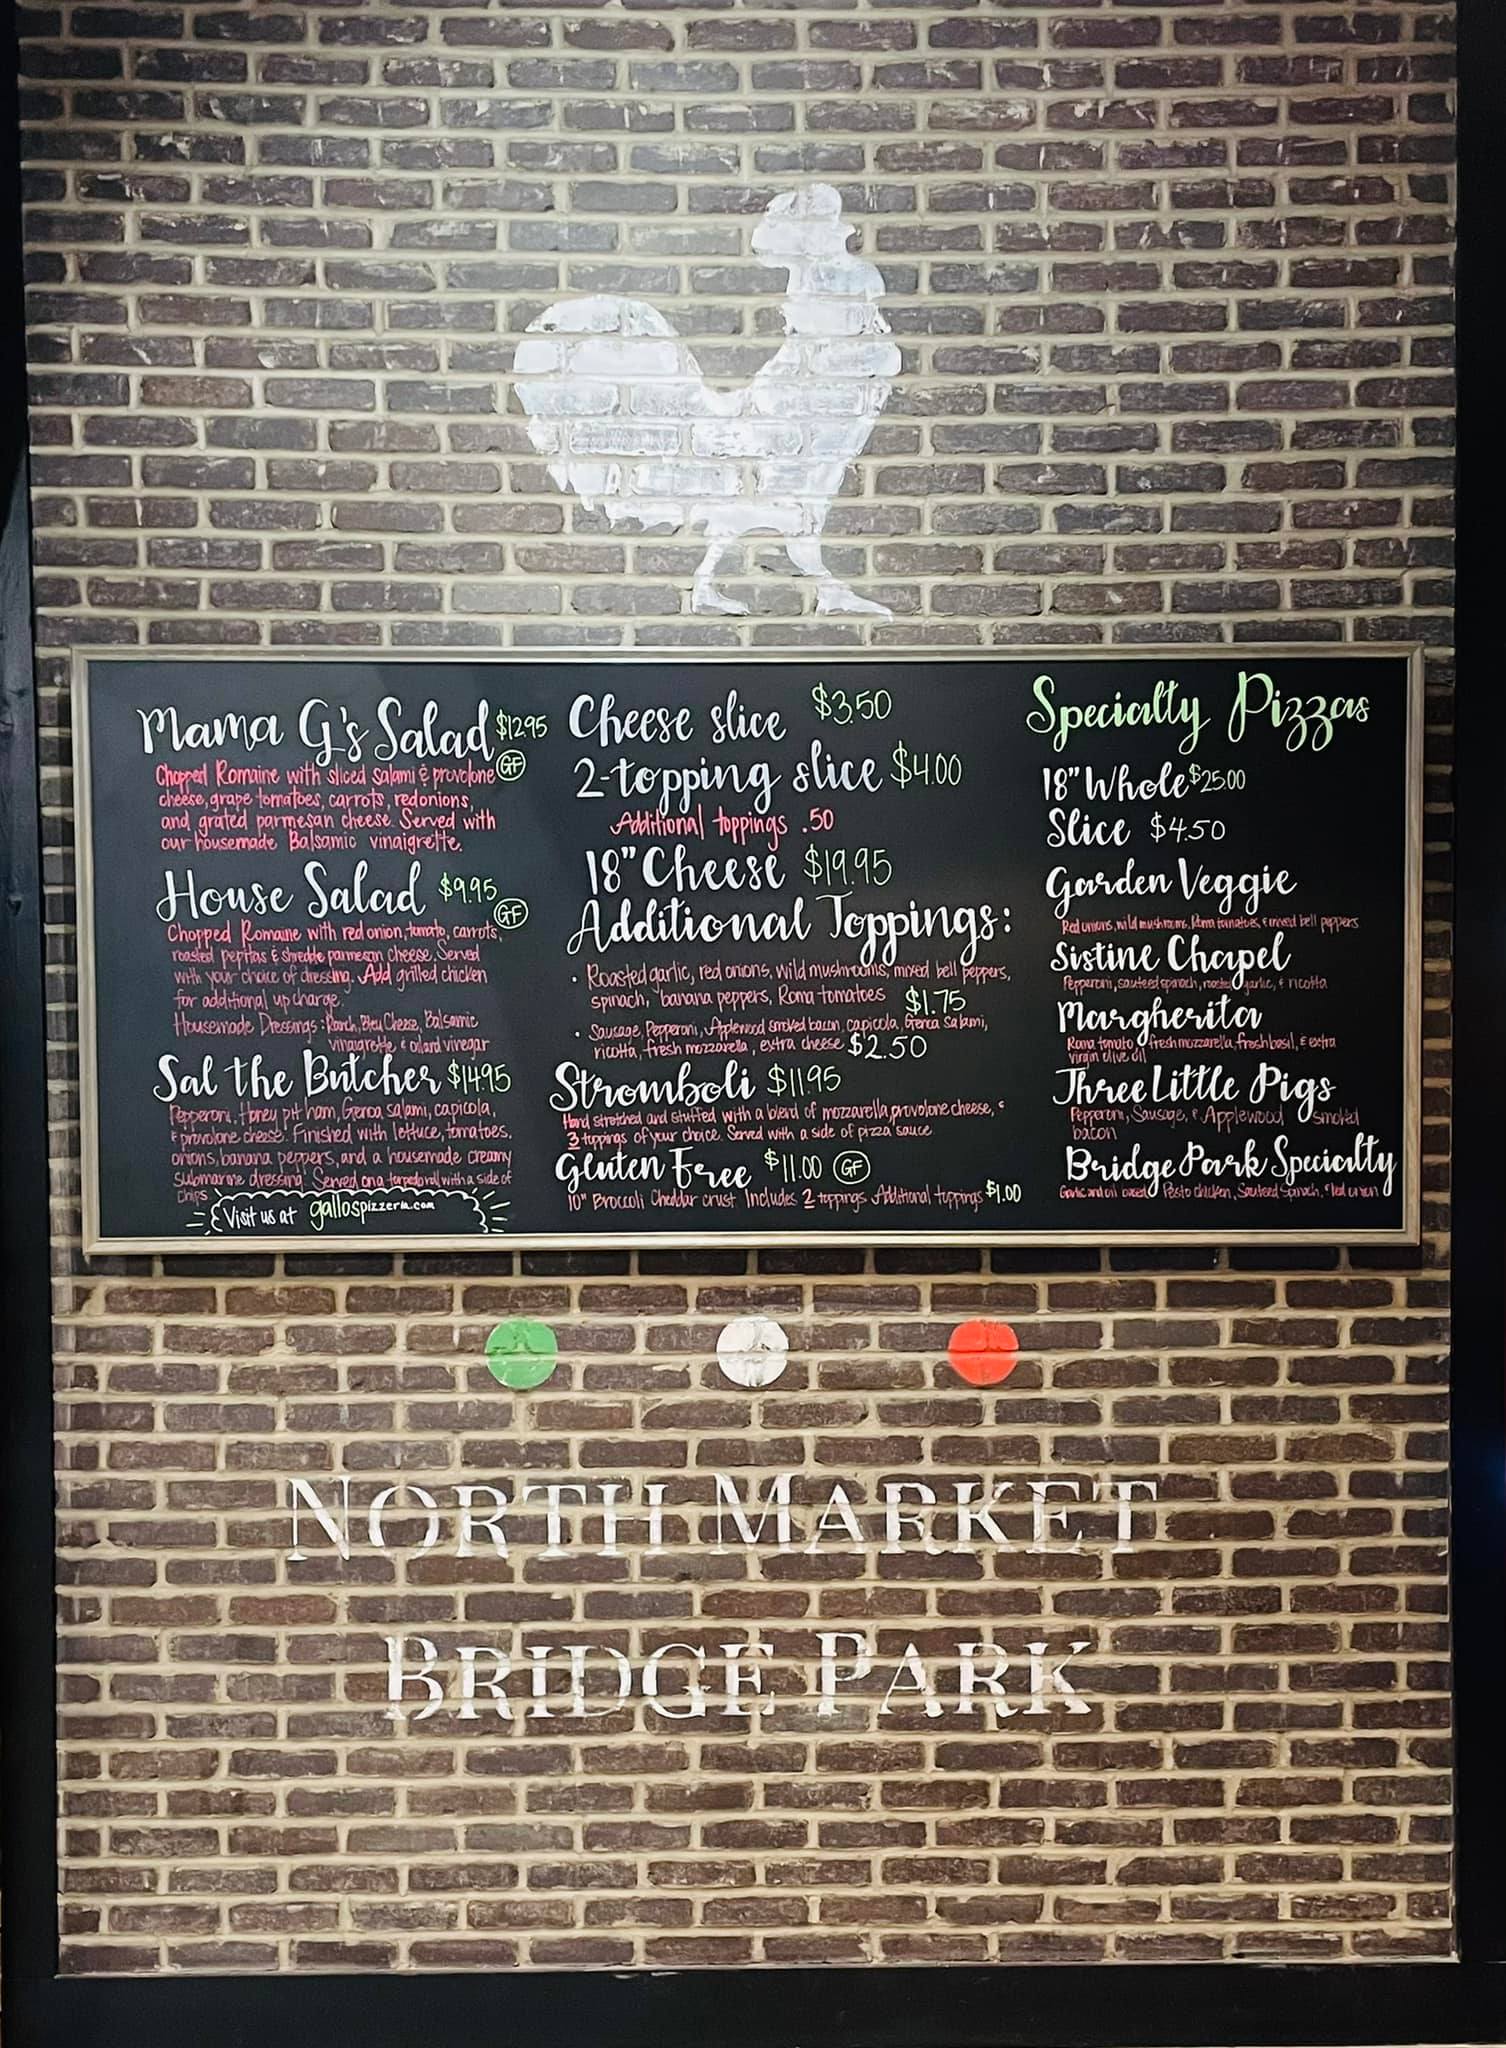 Mama G's Salad $12.95
GF
Chopped Romaine with sliced salami & provolone
cheese, grape tomatoes, carrots, red onions,
and grated parmesan cheese. Served with
our housemade Balsamic vinaigrette.
House Salad $9.95
GF
Chopped Romaine with red onion, tomato, carrots,
roasted pepitas & shredde parmesan cheese. Served
with your choice of dressing. Add grilled chicken
for additional up charge.
Housemade Dressings: Ranch, Bleu Cheese, Balsamic
vinaigrette & oil and vinegar
Sal the Butcher $14.95
Pepperoni, Honey pit ham, Genoa salami, capicola,
& provolone cheese. Finished with lettuce, tomatoes,
onions, banana peppers, and a housemade creamy
submarine dressing. Served on a torpedo roll with a side of
chips
Visit us at gallospizzeria.com
Cheese slice $3.50
2-topping slice $4.00
Additional toppings .50
18" Cheese $19.95
Additional Toppings:
• Roasted garlic, red onions, wild mushrooms, mixed bell peppers,
spinach, banana peppers, Roma tomatoes $1.75
• Sausage, Pepperoni, Applewood smoked bacon, capicola, Genoa Salami,
ricotta, fresh mozzarella, extra cheese $2.50
Stromboli $11.95
Hand stretched and stuffed with a blend of mozzarella, provolone cheese, &
3 toppings of your choice. Served with a side of pizza sauce
Gluten Free $11.00 GF
10" Broccoli Cheddar crust Includes 2 toppings Additional toppings $1.00
Specialty Pizzas
18" Whole $25.00
Slice $4.50
Garden Veggie
Red onions, wild mushrooms, Roma tomatoes, & mixed bell peppers
Sistine Chapel
Pepperoni, sauteed spinach, roasted garlic, & ricotta
Margherita
Roma tomato, fresh mozzarella, fresh basil, & extra
virgin olive oil
Three Little Pigs
Pepperoni, Sausage, & Applewood smoked
bacon
Bridge Park Specialty
Garlic and oil based Pesto chicken, Sauteed Spinach, & red onion
North Market
Bridge Park